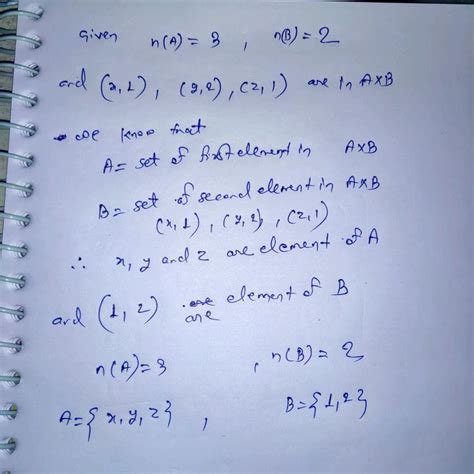 Given n(A) = 3 , n(B) = 2
and (x,1), (y,2), (z,1) are in A×B
we know that
A = set of first element in A×B
B = set of second element in A×B
(x,1), (y,2), (z,1)
∴ x, y and z are element of A
and (1,2) are element of B
n(A) = 3 , n(B) = 2
A = {x, y, z} , B = {1,2}